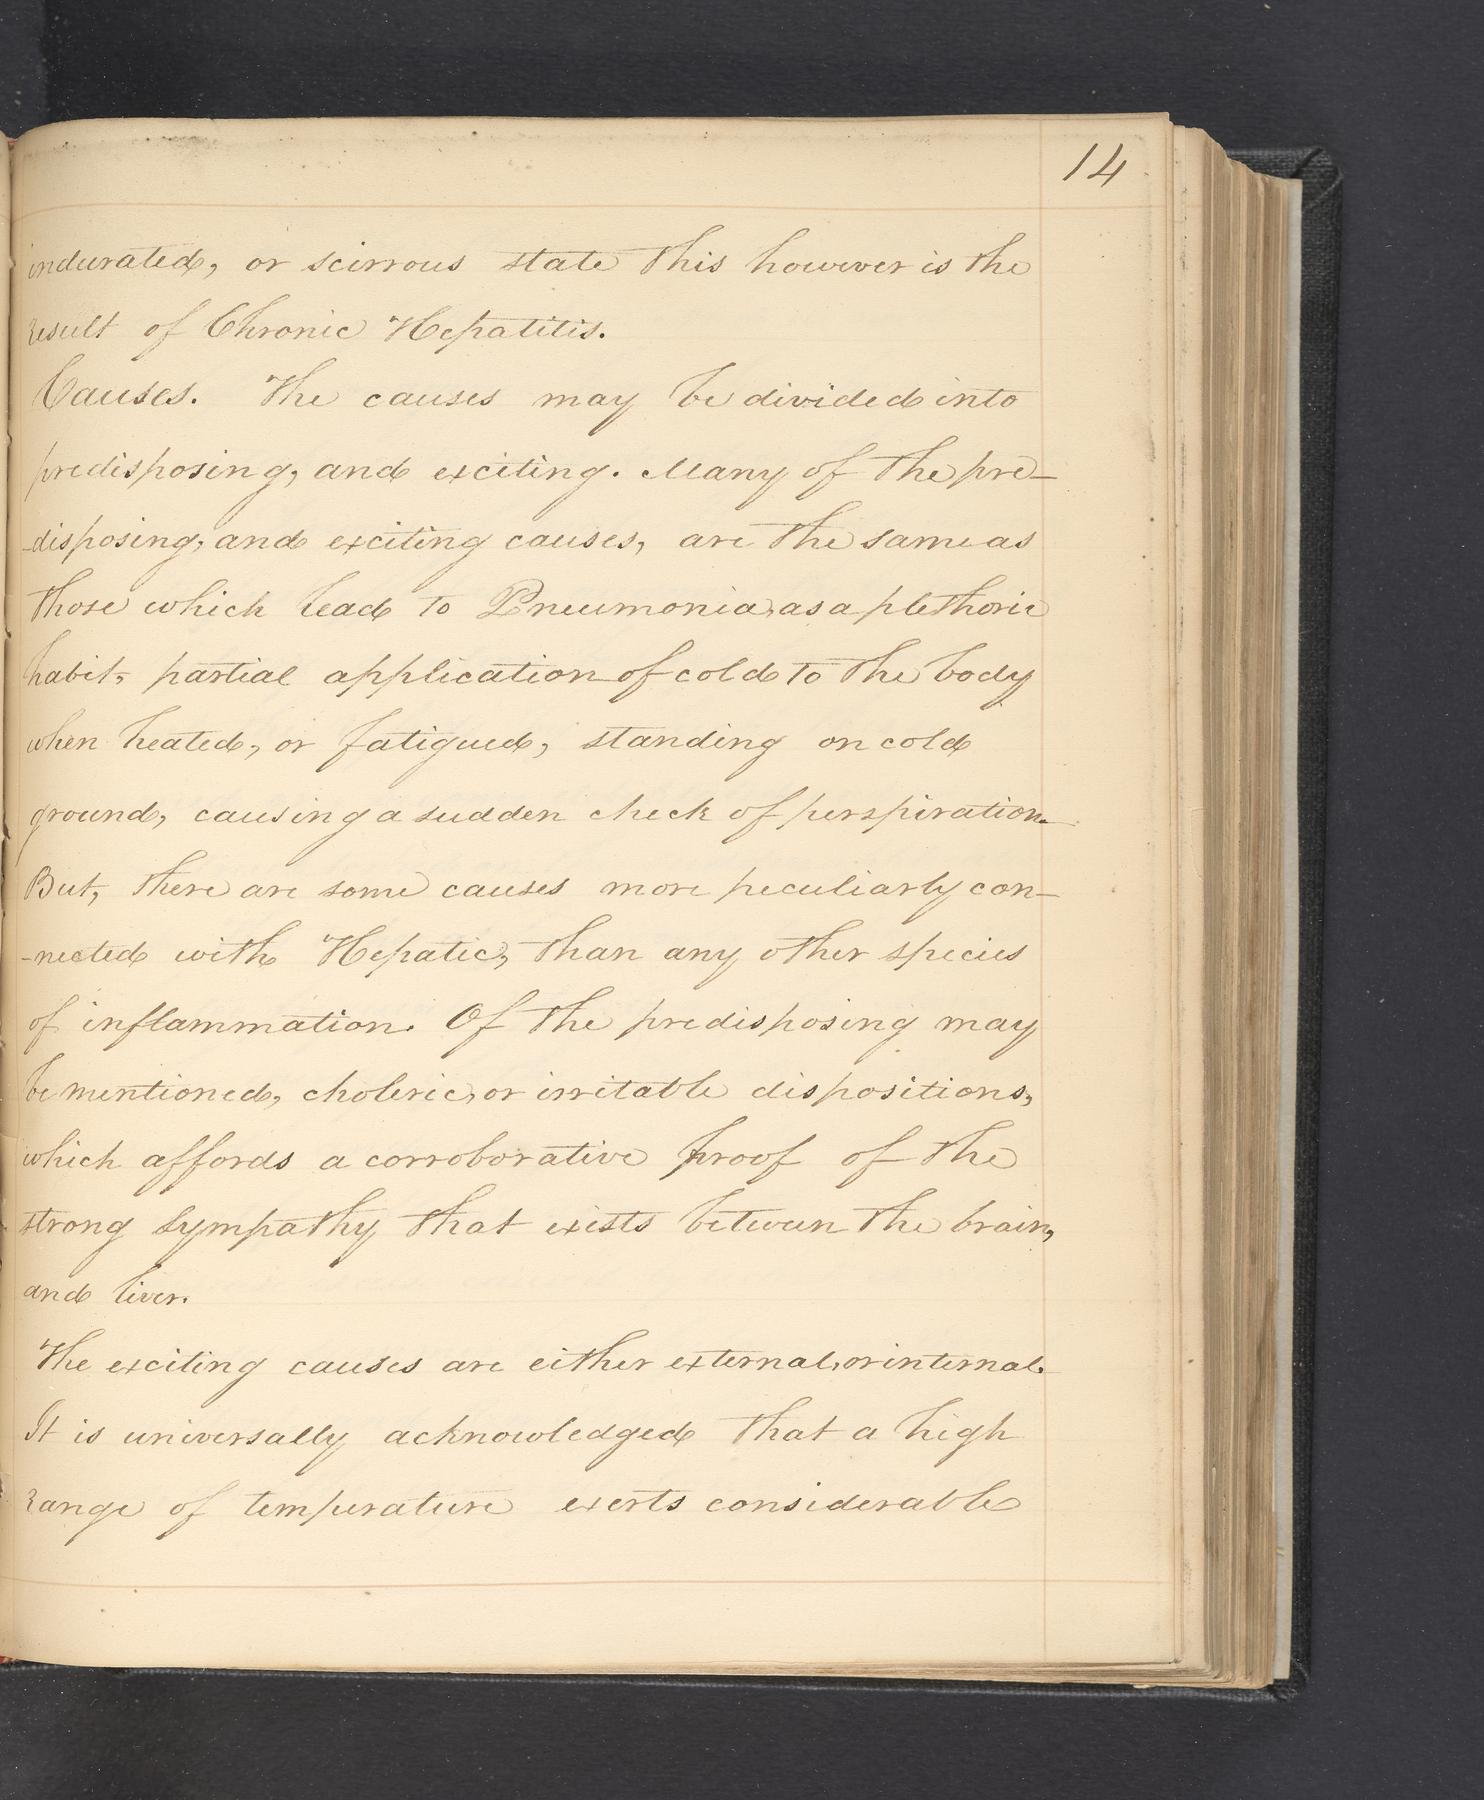 14
indurated, or scirrous state this however is the
result of Chronic Hepatitis.
Causes. The causes may be divided into
predisposing, and exciting. Many of the pre-
-disposing, and exciting causes, are the same as
those which lead to Pneumonia, as a plethoric
habit, partial application of cold to the body
when heated, or fatigued, standing on cold
ground, causing a sudden check of perspiration.
But, there are some causes more peculiarly con-
-nected with Hepatic, than any other species
of inflammation. Of the predisposing may
be mentioned, choleric, or irritable dispositions,
which affords a corroborative proof of the
strong sympathy that exists between the brain,
and liver.
The exciting causes are either external, or internal.
It is universally acknowledged that a high
range of temperature exerts considerable